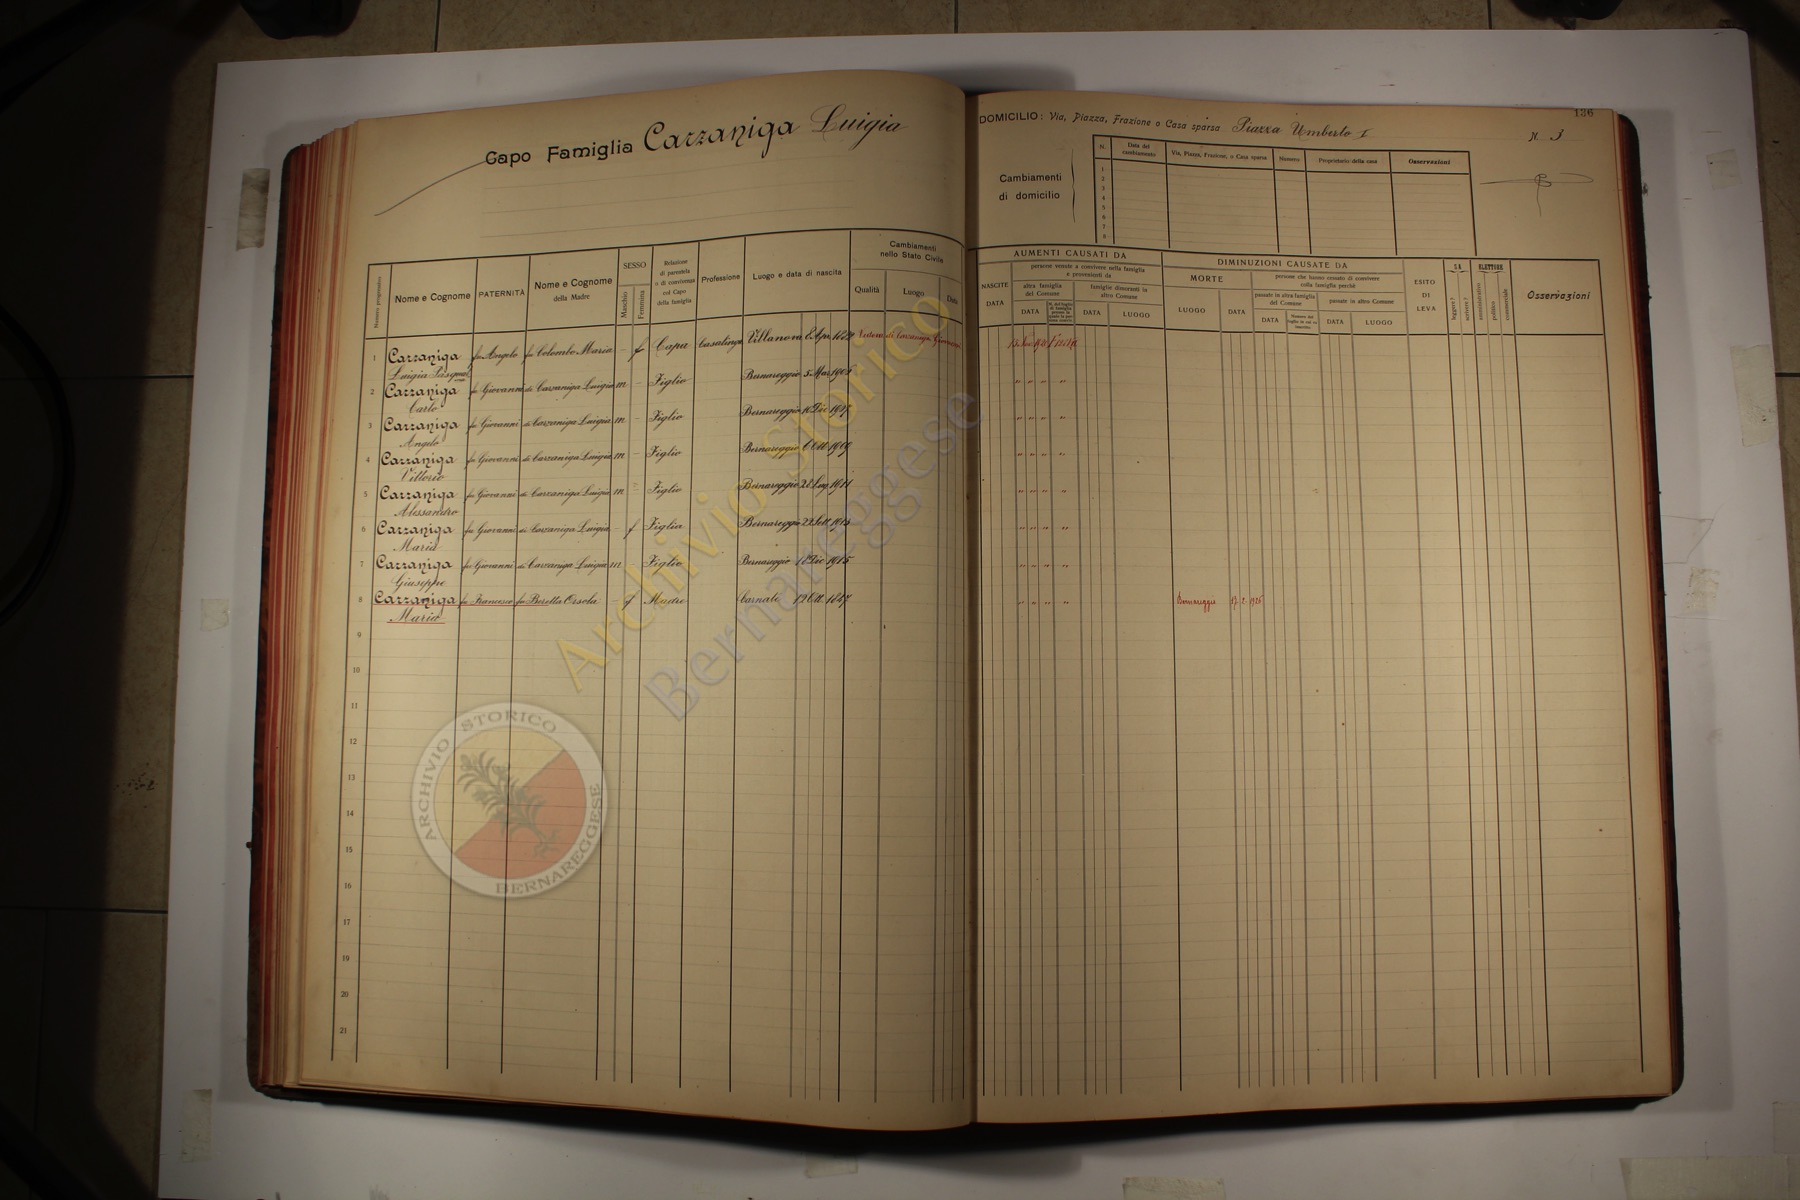 Capo Famiglia Cazzaniga Luigia
DOMICILIO: Via, Piazza, Frazione o Casa sparsa Piazza Umberto I N. 3
136
Cambiamenti di domicilio
N. Data del cambiamento Via, Piazza, Frazione, o Casa sparsa Numero Proprietario della casa Osservazioni
1
2
3
4
5
6
7
8
Numero progressivo Nome e Cognome PATERNITÀ Nome e Cognome della Madre SESSO Maschio Femmina Relazione di parentela o di convivenza col Capo della famiglia Professione Luogo e data di nascita Cambiamenti nello Stato Civile Qualità Luogo Data
AUMENTI CAUSATI DA
NASCITE DATA
persone venute a convivere nella famiglia e provenienti da
altra famiglia del Comune DATA
famiglie dimoranti in altro Comune DATA LUOGO
DIMINUZIONI CAUSATE DA
MORTE LUOGO DATA
persone che hanno cessato di convivere colla famiglia perchè
passate in altra famiglia del Comune DATA
passate in altro Comune DATA LUOGO
ESITO DI LEVA
SA leggere? scrivere?
ELETTORE amministrativo politico commerciale
Osservazioni
1 Cazzaniga Luigia fu Angelo fu Colombo Maria - f Capa Casalinga Villanova Vedova di Cazzaniga Giovanni
2 Cazzaniga Carlo fu Giovanni di Cazzaniga Luigia m - Figlio Bernareggio 5 Mar 1905
3 Cazzaniga Angelo fu Giovanni di Cazzaniga Luigia m - Figlio Bernareggio 10 Dic 1907
4 Cazzaniga Vittorio fu Giovanni di Cazzaniga Luigia m - Figlio Bernareggio 6 Ott 1909
5 Cazzaniga Alessandro fu Giovanni di Cazzaniga Luigia m Figlio Bernareggio 28 Lug 1911
6 Cazzaniga Maria fu Giovanni di Cazzaniga Luigia - f Figlia Bernareggio 22 Sett 1913
7 Cazzaniga Giuseppe fu Giovanni di Cazzaniga Luigia m Figlio Bernareggio 18 Dic 1915
8 Cazzaniga Maria fu Francesco fu Beretta Orsola - f Madre Cornate 12 Ott 1847 Bernareggio 17 2 1926
9
10
11
12
13
14
15
16
17
18
19
20
21
Archivio Storico
Bernareggese
ARCHIVIO STORICO BERNAREGGESE